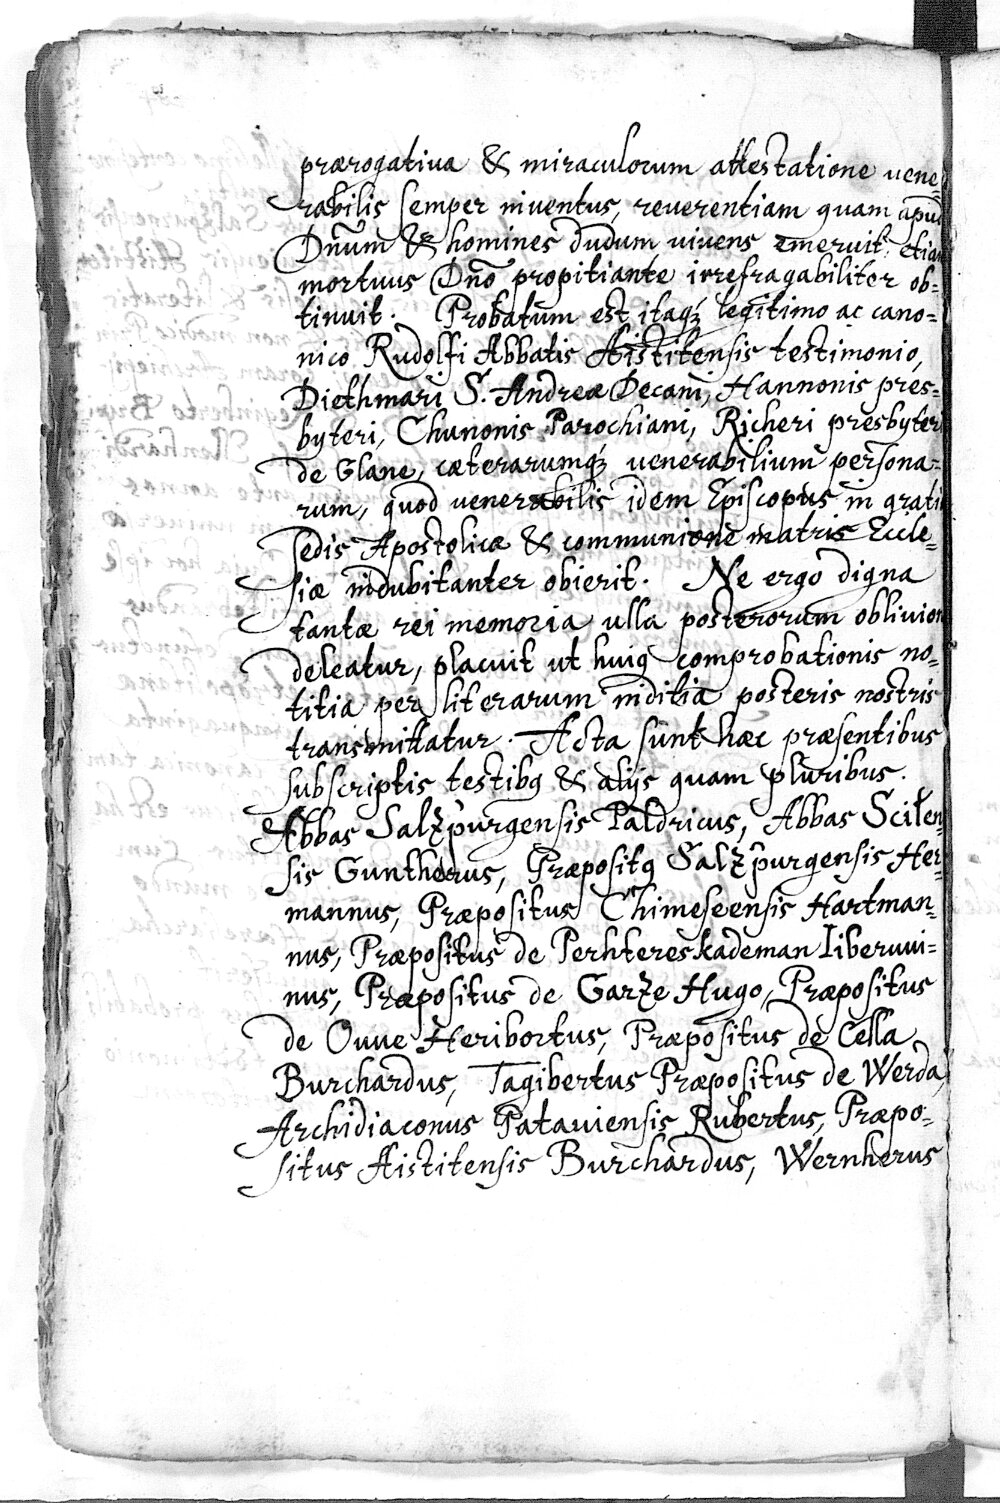 prærogativa & miraculorum attestatione vene=
rabilis semper inventus, reverentiam quam apud
Dñum & homines dudum vivens emeruit, etiam
mortuus Dño propitiante irrefragabiliter ob=
tinuit. Probatum est itaq; legitimo ac cano=
nico Rudolfi Abbatis Aistitensis testimonio,
Diethmari S. Andreæ Decani, Hannonis pres=
byteri, Chunonis Parochiani, Richeri presbyteri
de Glane, cæterarumq; venerabilium persona=
rum, quod venerabilis idem Episcopus in gratia
Sedis Apostolicæ & communione matris Eccle=
siæ indubitanter obierit. Ne ergo digna
tantæ rei memoria ulla posterorum oblivion
deleatur, placuit ut huiq comprobationis no=
titia per literarum inditia posteris nostris
transmittatur. Acta sunt hæc præsentibus
subscriptis testibq & alijs quam pluribus.
Abbas Salzpurgensis Paldricus, Abbas Scilen=
sis Guntherus, Præpositq Salzpurgensis Her=
mannus, Præpositus Chimeseensis Hartman=
nus, Præpositus de Perhtereskademan Iiberuui=
nus, Præpositus de Garze Hugo, Præpositus
de Ouue Heribortus, Præpositus de Cella
Burchardus, Tagibertus Præpositus de Werda,
Archidiaconus Pataviensis Rubertus, Præpo=
situs Aistitensis Burchardus, Wernherus